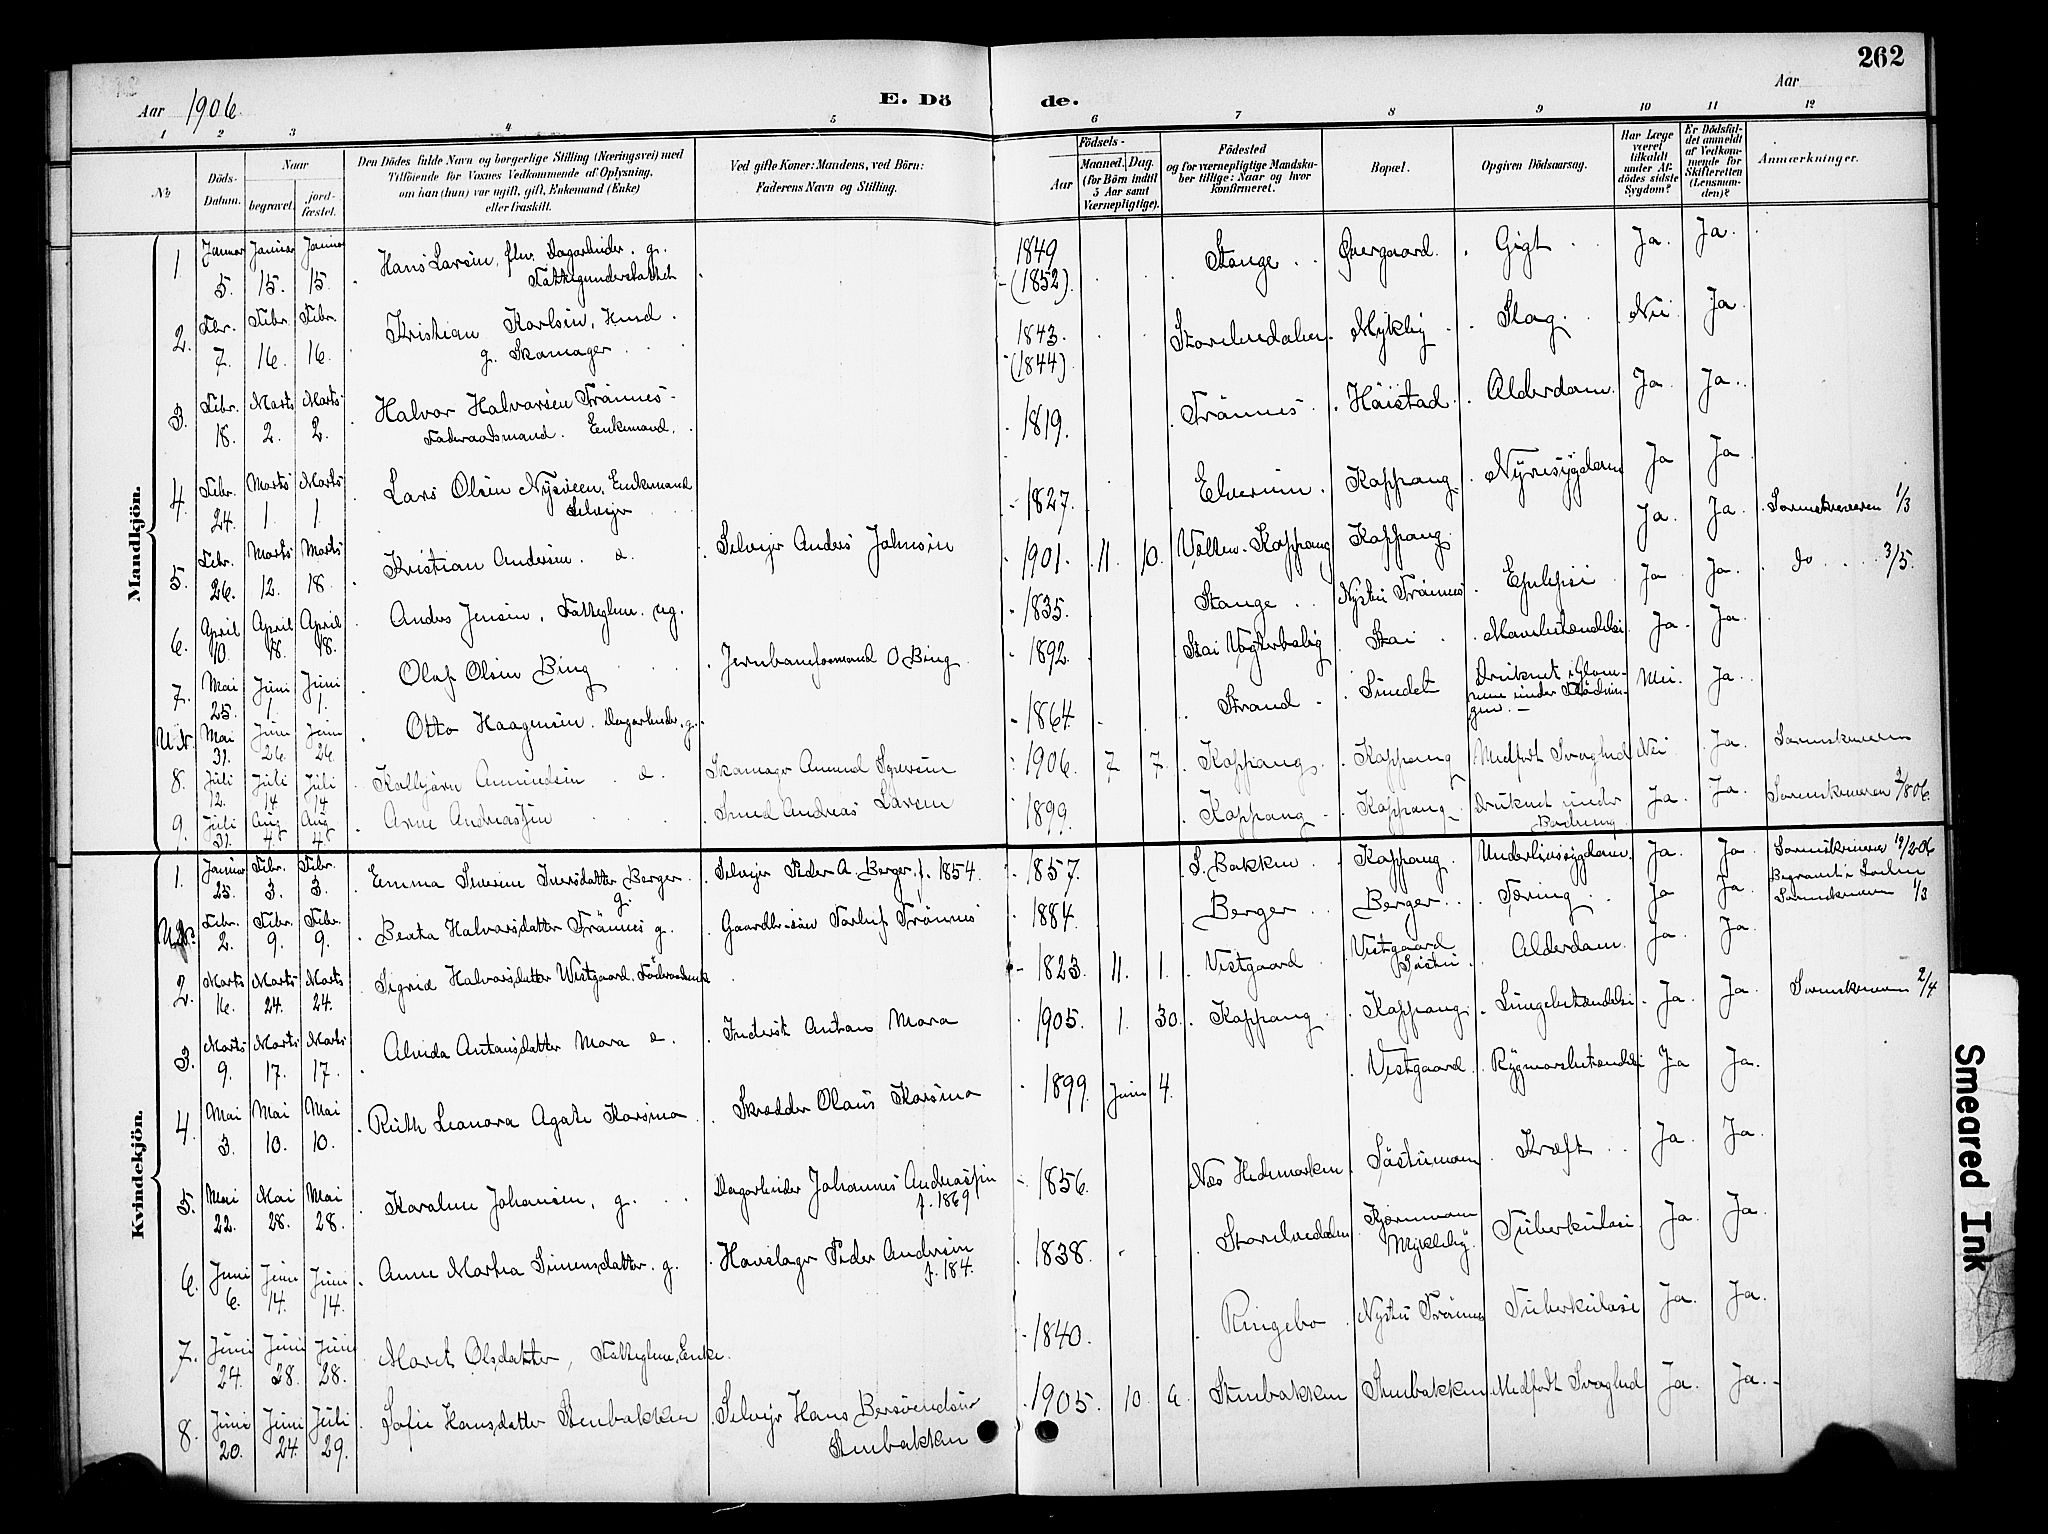 262
Aar 1906.
E. Döde.
Aar
1 2 3 4 5 6 7 8 9 10 11 12
№
Döds-Datum.
Naar
begravet.
jordfæstet.
Den Dödes fulde Navn og borgerlige Stilling (Næringsvei) med
Tilföiende for Voxnes Vedkommende af Oplysning,
om han (hun) var ugift, gift, Enkemand (Enke)
eller fraskilt.
Ved gifte Koner: Mandens, ved Börn:
Faderens Navn og Stilling.
Födsels-
Aar
Maaned. Dag.
(for Börn indtil
5 Aar samt
Værnepligtige).
Födested
og for værnepligtige Mandsku-
ber tillige: Naar og hvor
konfirmeret.
Bopæl.
Opgiven Dödsaarsag.
Har Læge
været
tilkaldt
under Af-
dödes sidste
Sygdom?
Er Dödsfal-
det anmeldt
af Vedkom-
mende for
Skifteretten
(Lensman-
den)?
Anmærkninger.
Mandkjön.
1 Januar 5. Januar 15. Januar 15. Hans Larsen, flv. Dagarbeider. g. Fattigunderstøttet 1849 (1852). Stange Øvergaard. Gigt Ja. Ja.
2. Febr. 7. Febr. 16. Febr. 16. Kristian Karlsen, Hmd. g. Skomager 1843. (1844) Storelvedalen. Mykleby Slag. Nei Ja.
3. Febr. 18. Marts 2. Marts 2. Halvor Halvorsen Trønnes Føderaadsmand. Enkemand. 1819. Trønnes Høistad. Alderdom. Ja. Ja.
4. Febr. 24. Marts 1. Marts 1. Lars Olsen Nysveen, Enkemand Selveier 1827. Elverum. Koppang Nyresygdom Ja Ja
5. Febr. 26. Marts 12. Marts 18. Kristian Andersen. Selveier Anders Johnsen 1901. 11. 10. Vollen Koppang Koppang. Ja. Ja. Sorenskriveren 1/3
6. April 10. April 18. April 18. Anders Jensen, Fattiglem. ug. 1835. Stange Nystu Trønnes Epilepsi Ja Ja. do 3/5.
7. Mai 25. Juni 1. Juni 1. Olaf Olsen Bing Jernbaneformand O Bing. 1892. Stai Vogterbolig Stai Mavebetændelse Ja. Ja.
U.N. Mai 31. Juni 26. Juni 26. Otto Haagensen. Dagarbeider. g. 1864 Strand Sundet Druknet i Glommen under Flødningen. Nei. Ja.
8. Juli 12. Juli 14 Juli 14 Kolbjørn Amundsen Skomager Amund Syversen 1906. 7 7. Koppang. Koppang Medfødt Svaghed Nei Ja. Sorenskriveren
9. Juli 31. Aug. 4. Aug. 4. Arne Andreassen Smed Andreas Larsen 1899. Koppang Koppang Druknet under Badning. Ja. Ja. Sorenskriveren 2/8 06.
Kvindekjön.
1. Januar 25. Febr. 3. Febr. 3. Emma Iversdatter Berger g. Selveier Peder A. Berger, f. 1854. 1857. S. Bakken Koppang Underlivssygdom. Ja. Ja Sorenskriveren 19/2 06
Febr. 2. Febr. 9. Febr. 9. Beata Halvorsdatter Trønnes g. Trønnes 1884. Berger Berger Tæring Ja Ja. Begravet i Sorenskriveren 1/3
2. Marts 16. Marts 24. Marts 24. Sigrid Halvorsdatter Westgaard, 1823. 11. 1. Vestgaard Vestgaard Alderdom. Ja. Ja.
3. Marts 9. Marts 17. Marts 17. Alvida Antonsdatter Mora Anton Mora 1905. 1. 30. Koppang. Koppang Lungebetændelse Ja. Ja. Sorenskriveren 2/4
4. Mai 3. Mai 10. Mai 10. Ruth Leonora Agate Korsmo Skrædder Olaus Korsmo 1899. Juni 4. Vestgaard. Rygmarvsbetændelse Ja Ja.
5. Mai 22. Mai 28. Mai 28. Karoline Johansen, g. Dagarbeider Johannes Andreassen f. 1869 1856. Næs Hedemarken Kræft Ja. Ja.
6. Juni 6. Juni 14. Juni 14. Anne Martea Simensdatter. g. Peder Andersen f. 184. 1838. Storelvedalen Mykleby. Tuberkulose Ja. Ja.
7. Juni 24. Juni 28. Juni 28. Marit Olsdatter, Fattiglem, Enke. 1840. Ringebo Nystu Trønnes Tuberkulose Ja. Ja.
8. Juni 20. Juni 24. Juli 29. Sofie Hansdatter Stenbakken Selveier Hans Stenbakken 1905. 10. Stenbakken Stenbakken Medfødt Svaghed Ja. Ja.
Smeared Ink